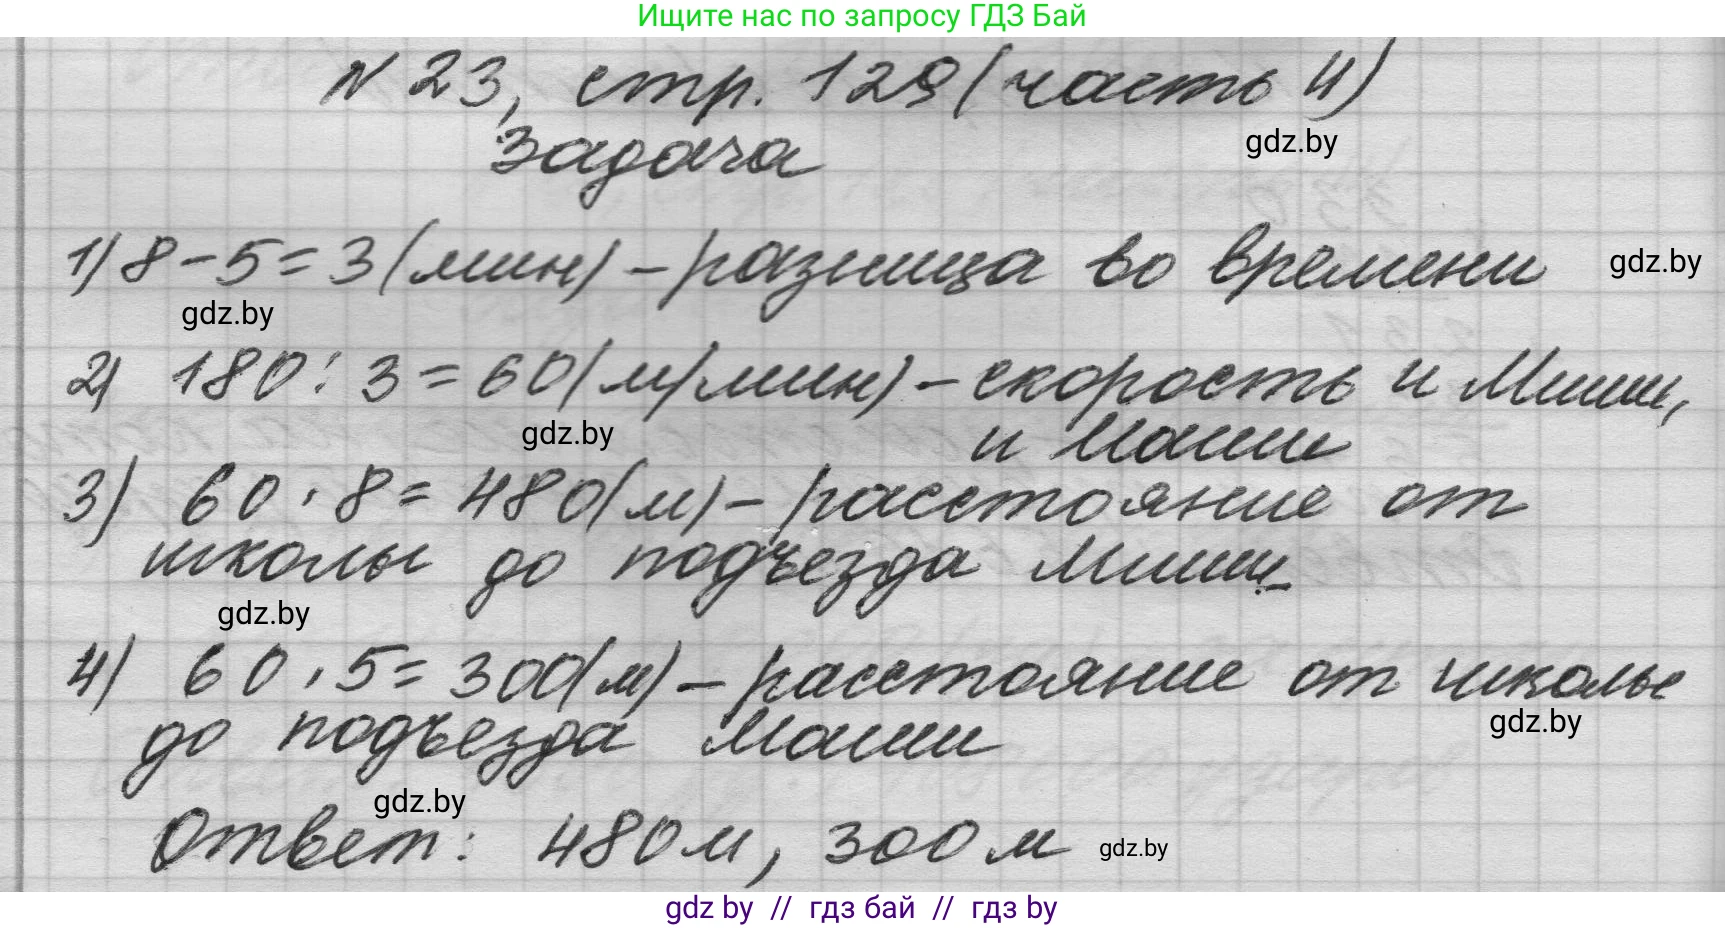 Ищите нас по запросу ГДЗ Бай
N 23, стр. 129 (часть 4)
gdz.by
Задача
1) 8 - 5 = 3 (мин) - разница во времени
gdz.by
gdz.by
2) 180 : 3 = 60 (м/мин) - скорость и Миши,
и Маши
gdz.by
3) 60 · 8 = 480 (м) - расстояние от
школы до подъезда Миши
gdz.by
4) 60 · 5 = 300 (м) - расстояние от школы
gdz.by
до подъезда Маши
gdz.by
Ответ: 480 м, 300 м
gdz.by
gdz by // гдз бай // гдз by